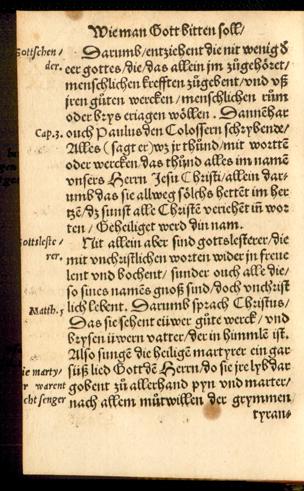 Wie man Gott bitten soll/
Darumb/entziehent die nit wenig d̕
eer gottes/die/das allein jm zůgehöret/
menschlichen krefften zůgebent/und uß
jren gůten wercken/menschlichen rům
oder brys eriagen wöllen. Dannēhar
Cap.3.
ouch Paulus den Colossern schrybende/
Alles (sagt er) wz jr thůnd/mit wortten
oder wercken das thůnd alles im namē
unsers Herrn Jesu Christi/allein dar-
umb das sie allweg sölchs hettēt im her
tzē/dz sunst alle Christē veriehēt
wor
ten/Geheiliget werd din nam.
Nit allein aber sind gottslesterer/die
mit unchristlichen worten wider jn freue
lent und bochent/sunder ouch alle die/
so sines namēs gnoß sind/doch unchrist
lich lebent. Darumb sprach Christus/
Matth.5
Das sie sehent eüwer gůte werck/und
brysen üwern vatter/der in himmlē ist.
Also sungē die heiligē martyrer ein gar
süß lied Gott dē Herrn/do sie jre lyb dar
gobent zů allerhand pyn und marter/
nach allem můtwillen der grymmen
tyran-